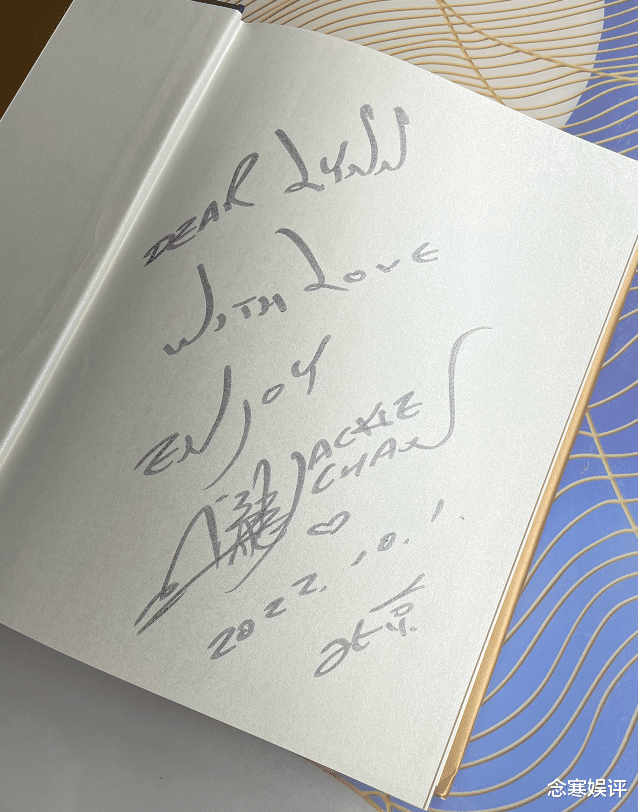 DEAR LYNN
WITH LOVE
ENJOY
JACKIE
CHAN
成龍
♡
2022.10.1.
北京
念寒娱评